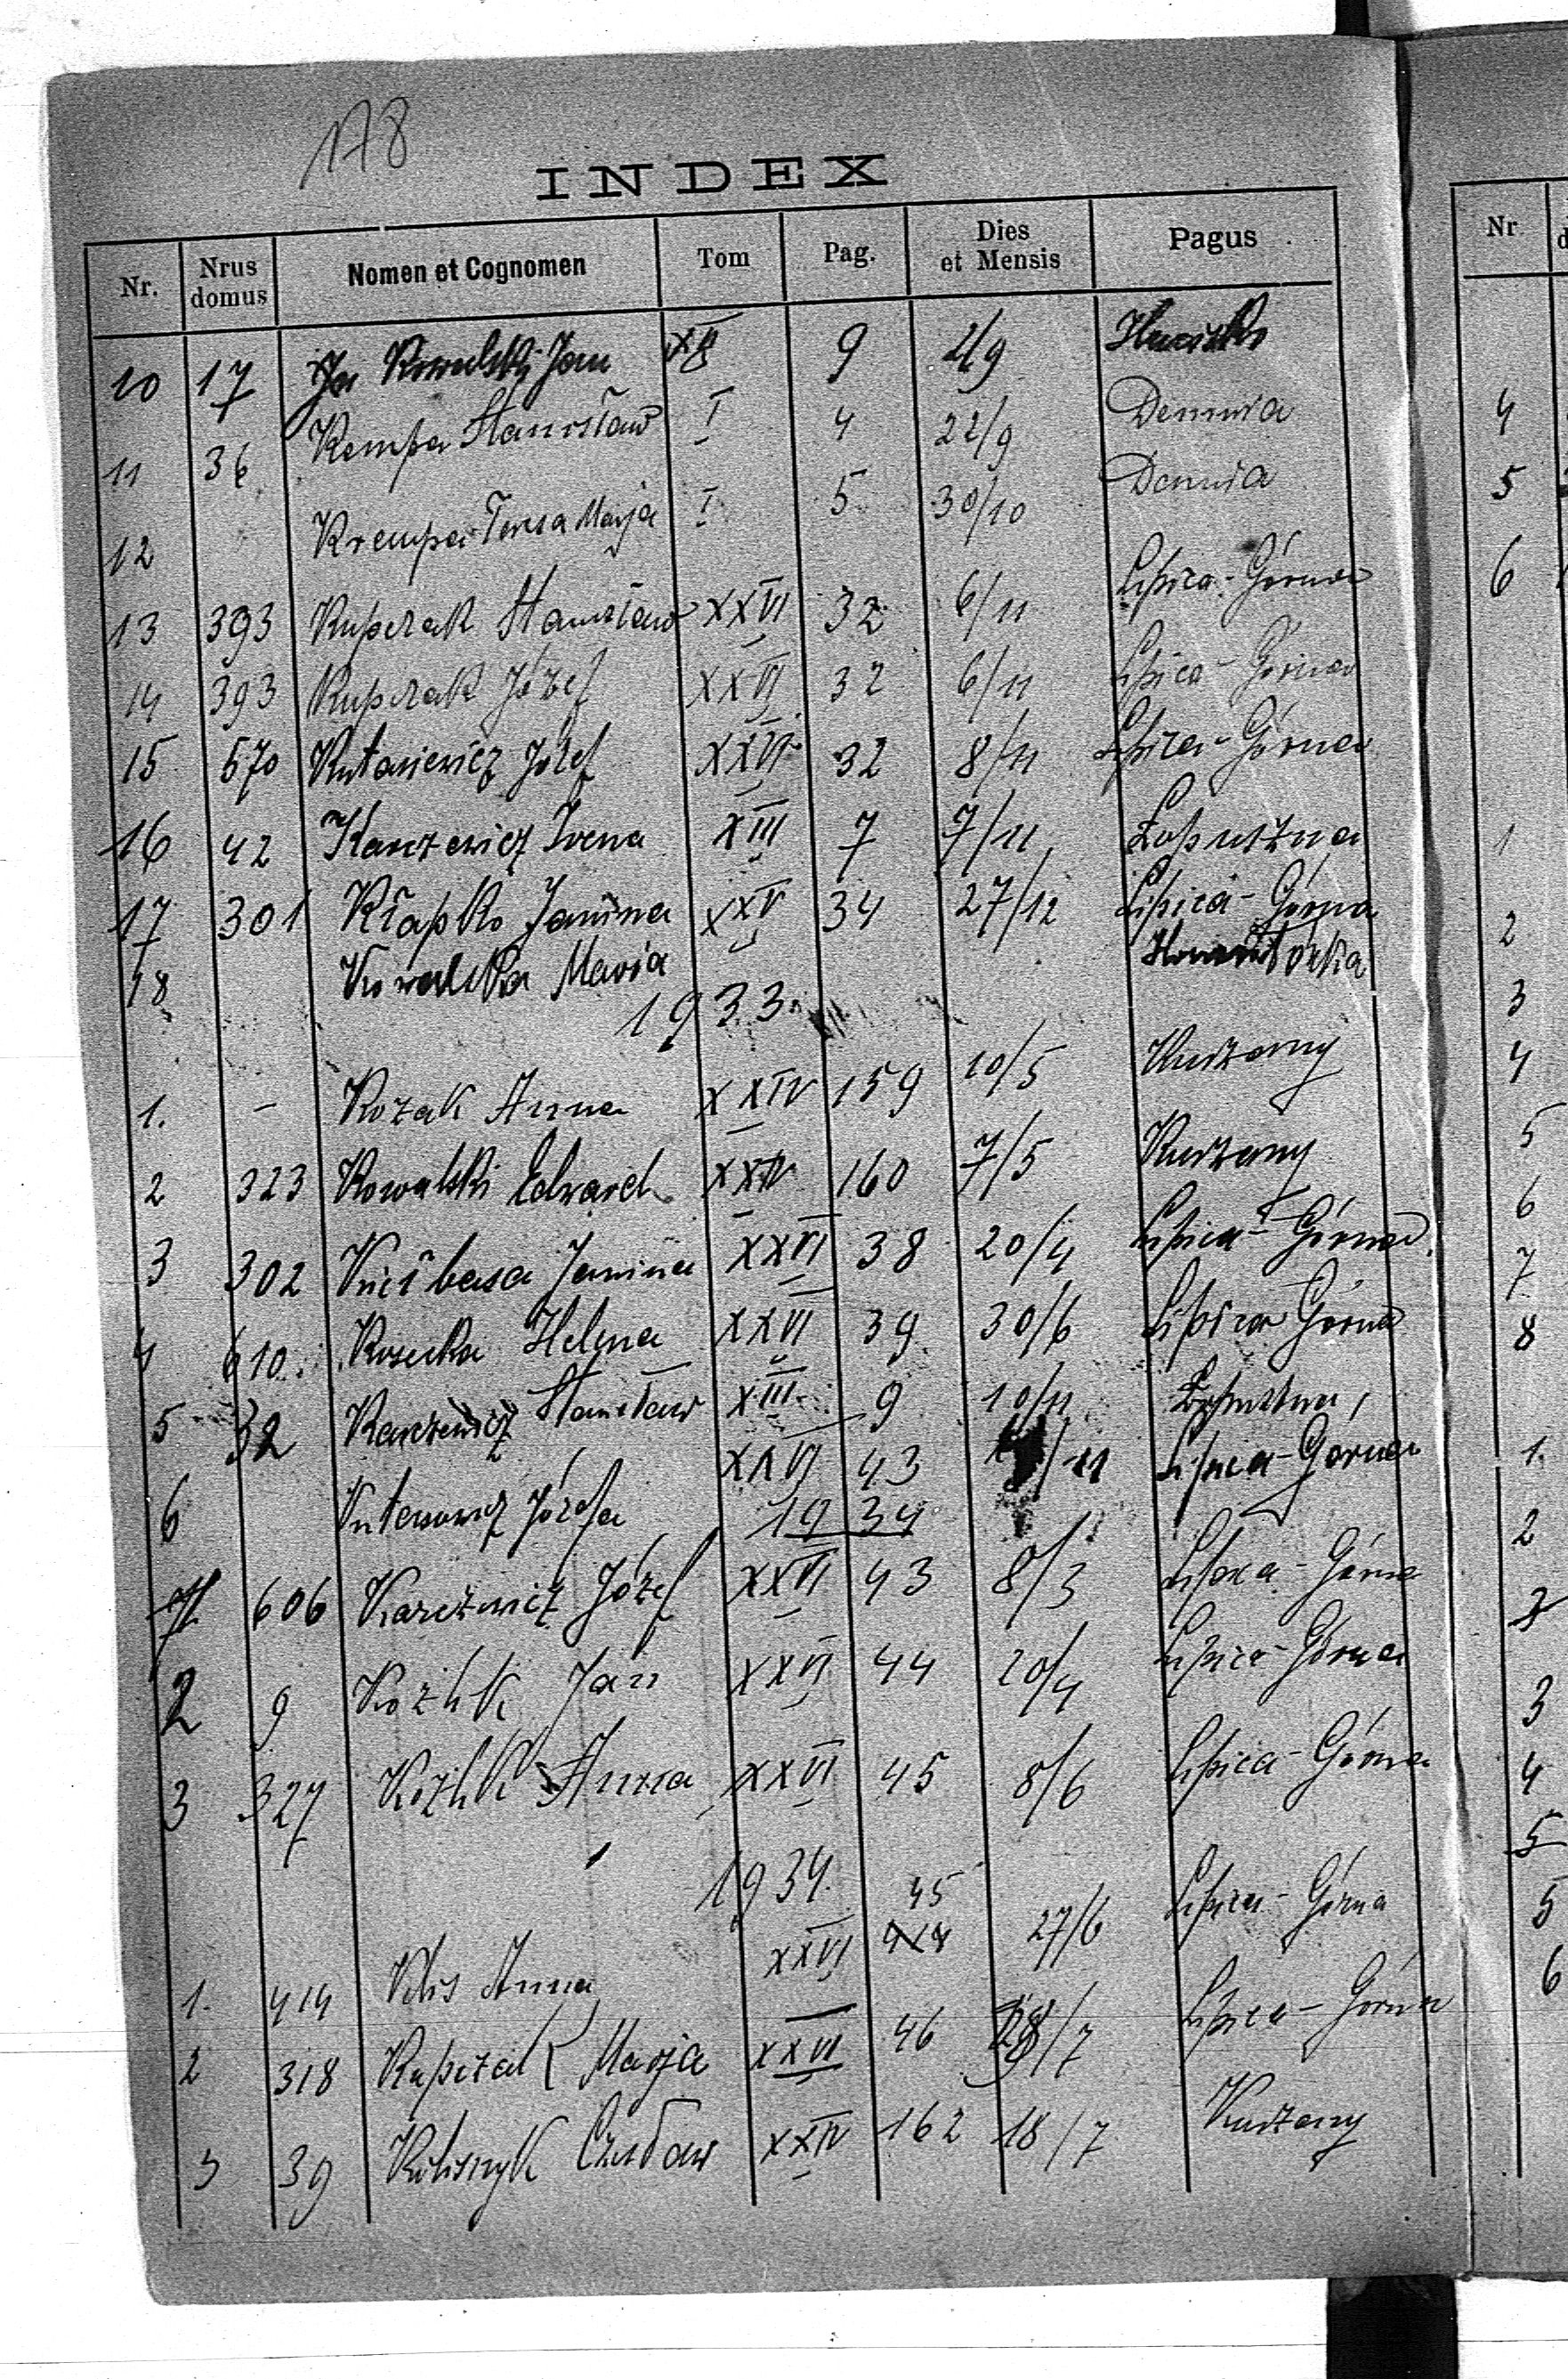 178
INDEX
Nr. Nrus domus Nomen et Cognomen Tom Pag. Dies et Mensis Pagus
10 17 Kowalski Jan 9 4/9
11 36 Kempa Stanisław I 4 22/9 Demnia
12 Krempa Teresa Marja I 5 30/10 Demnia
13 393 Kupczak Stanisław XXVI 32 6/11 Lipica-Górna
14 393 Kupczak Józef XXVI 32 6/11 Lipica-Górna
15 570 Kutasiewicz Józef XXVI 32 8/11 Lipica-Górna
16 42 Karczewicz Irena XIII 7 7/11 Łopuszna
17 301 Kłapko Janina XXV 34 27/12 Lipica-Górna
18 Kowalska Maria
1933
1. - Kozak Anna XXIV 159 10/5 Kurzany
2 323 Kowalski Edward XXIV 160 7/5 Kurzany
3 302 Kiełbasa Janina XXVI 38 20/4 Lipica-Górna
4 610 Helena XXVI 39 30/6 Lipica Górna
5 32 Karczewicz Stanisław XIII 9 10/11 Łopuszna
6 Józefa XXVI 43 /11 Lipica-Gorna
1934
1 606 Karczewicz Józef XXVI 43 8/3 Lipica-Górna
2 9 Kozlik Jan XXVI 44 20/4 Lipica-Górna
3 327 Kozlik Anna XXVI 45 8/6 Lipica-Górna
1934
1. 414 Klis Anna XXVI 45 27/6 Lipica-Górna
2 318 Kupczak Marja XXVI 46 /7 Lipica-Górna
3 39 Czesław XXIV 162 18/7 Kurzany
Nr
4
5
6
1
2
3
4
5
6
7
8
1.
2
3
4
5
5
6